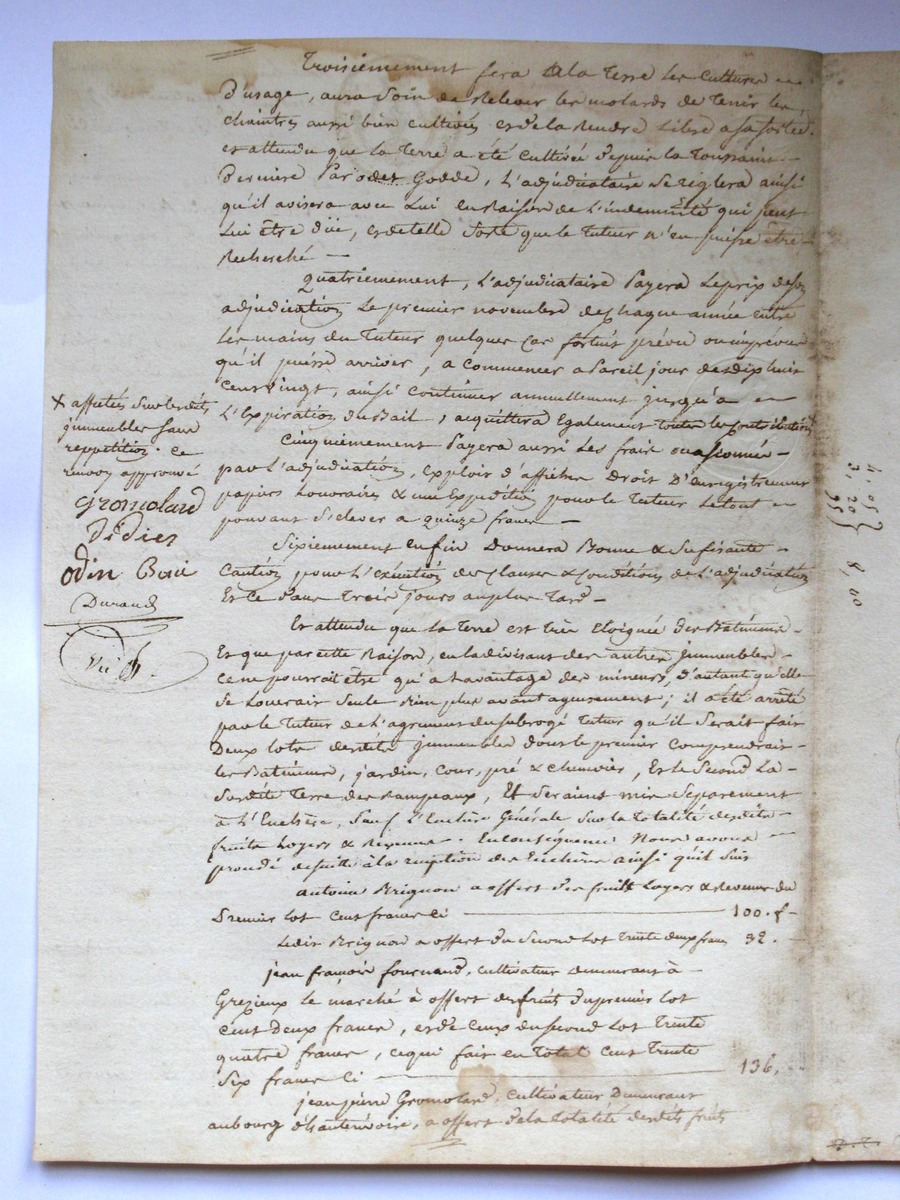 Troisiemement fera à la Terre les cultures
D'usage, aura soin de Relever les molards de Tenir les
chaintres aussi bien cultivées et de la Rendre Libre a sa sortie.
et attendu que la Terre a été cultivée depuis la Toussaint
Derniere Par odet Godde, L'adjudicataire se réglera ainsi
qu'il avisera avec Lui en Raison de L'indemnité qui peut
Lui être düe, et de telle sorte que le Tuteur n'en puisse être
Recherché —
Quatriemement, L'adjudicataire Payera Le prix de son
adjudication Le premier novembre de chaque année entre
Les mains du Tuteur quelques cas fortuits prévu ou imprévu
qu'il puisse arriver, a commencer a Pareil jour de dix huit
Cent vingt, ainsi continuer annuellement jusqu'a
L'Expiration du Bail, acquittera Egalement toutes les contributions
x affectées sur lesdits
immeubles sans
reppetition. ce
renvoy approuvé
Gromolard
Didier
Odin Boni
Durand
Cinquiemement Payera aussi Les frais occasionnés
par L'adjudication, Exploit d'affiches Droit D'enregistrement
papiers honoraires & une Expedition pour le Tuteur Le tout
pouvant s'elever a quinze francs —
4,05
3,20
95
8,00
Sixiemement enfin Donnera Bonne & Suffisante
Caution pour L'exécution des clauses & conditions de L'adjudication
Et ce dans Trois jours au plus Tard —
Et attendu que la Terre est Très Eloignée des Bâtimens
Et que par cette Raison, en la divisant des autres immeubles
ce ne pourroit être qu'a l'avantage des mineurs, d'autant qu'elle
se Loueroit seule Bien plus avantageusement; il a été arrêté
par le Tuteur de L'agrement du subrogé Tuteur qu'il serait fait
Deux lots desdits immeubles dont le premier Comprendrait
les Bâtimens, jardin, cour, pré & chenevier, Et le Second La
Susdite Terre des Rampeaux, Et seraient mis Séparement
à L'Enchère, sauf L'Enchère Générale sur la Totalité desdits
fruits Loyers & Revenus. En conséquence Nous avons
procédé de suitte à la reception des Enchères ainsi qu'il suit
antoine Brignon a offert des fruits Loyers & Revenus du
Premier lot cent francs ci — 100. f
Ledit Brignon a offert du Second Lot Trente deux francs 32.
jean françois fournand, cultivateur demeurant à
Grezieux le marché à offert des fruits du premier lot
cent deux francs, et de ceux du second lot Trente
quatre francs, ce qui fait en Total cent Trente
Six francs Ci — 136.
jean pierre Gromolard, cultivateur Demeurant
au bourg d'hauterivoire, a offert de la totalité desdits fruits